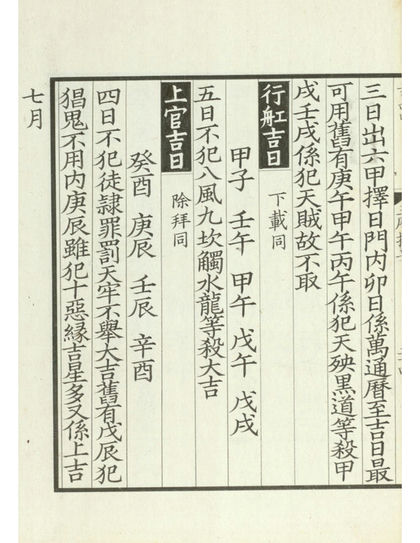 三日出六甲擇日門內卯日係萬通曆至吉日最
可用舊有庚午甲午丙午係犯天殃黑道等殺甲
戌壬戌係犯天賊故不取
行舡吉日 下載同
甲子 壬午 甲午 戊午 戊戌
五日不犯八風九坎觸水龍等殺大吉
上官吉日 除拜同
癸酉 庚辰 壬辰 辛酉
四日不犯徒隷罪罰天牢不舉大吉舊有戊辰犯
猖鬼不用內庚辰雖犯十惡縁吉星多又係上吉
七月